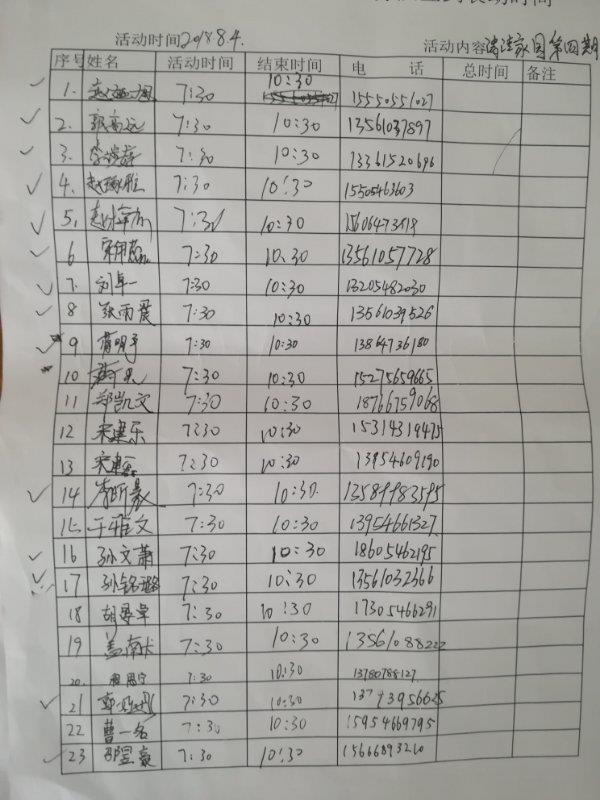 活动时间2018.8.4.
活动内容清洁家园第四期
序号 姓名 活动时间 结束时间 电 话 总时间 备注
1. 7:30 10:30 15550551027
2. 郭高远 7:30 10:30 13561037897
3. 7:30 10:30 13361520696
4. 7:30 10:30 15505463603
5. 7:30 10:30
6 7:30 10:30 13561057728
7. 刘卓一 7:30 10:30 13205482030
8 张雨晨 7:30 10:30 13561039526
9 7:30 10:30 13864736180
10 7:30 10:30 15275659665
11 郑凯文 7:30 10:30 18766759068
12 宋建乐 7:30 10:30 15314319475
13 7:30 10:30 13954609190
14 李昕晏 7:30 10:30. 13589983595
15 于雅文 7:30 10:30 13954661327
16 孙文萧 7:30 10:30 18605462195
17 孙铭璐 7:30 10:30 13561032366
18 7:30 10:30 17305466291
19 7:30 10:30 13561088222
20. 7:30 10:30 13780788127
21 7:30 10:30
22 曹一名 7:30 10:30 15954669795
23 邵昱豪 7:30 10:30 15666893210